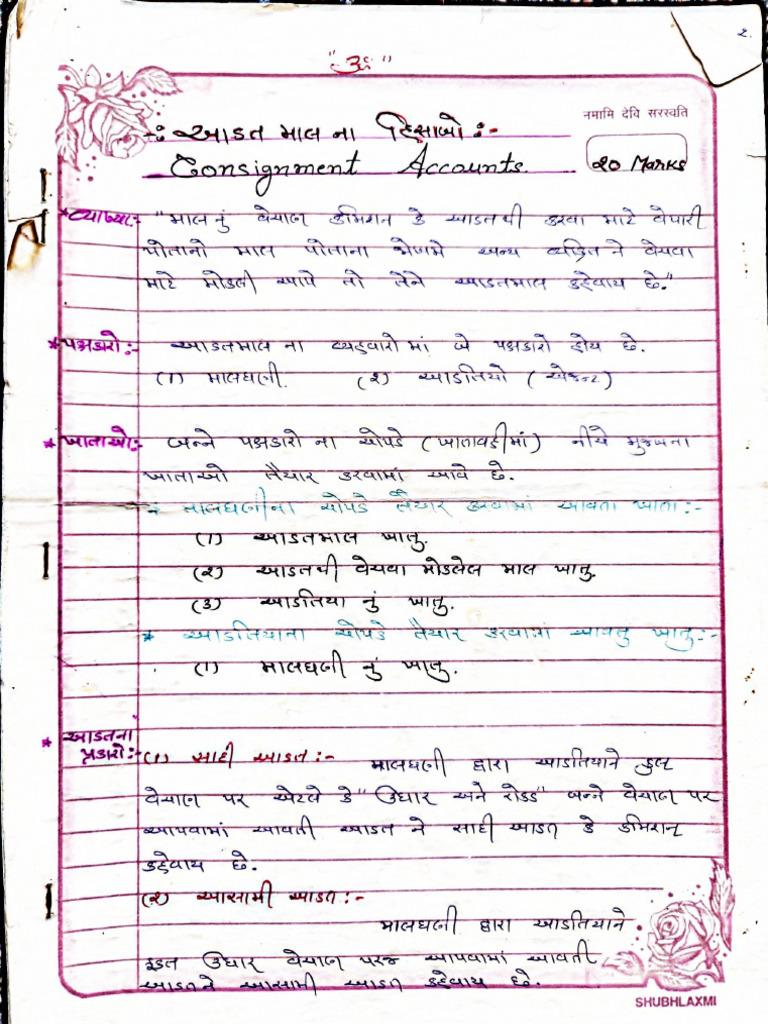 "ૐ"
૨.
નમામિ દેવિ સરસ્વતિ
-: આડત માલ ના હિસાબો :-
Consignment Accounts.
20 Marks
* વ્યાખ્યા:- "માલનું વેચાણ કમિશન કે આડતથી કરવા માટે વેપારી
પોતાનો માલ પોતાના જોખમે અન્ય વ્યક્તિ ને વેચવા
માટે મોકલી આપે તો તેને આડતમાલ કહેવાય છે."
* પક્ષકારો:- આડતમાલ ના વ્યવહારો માં બે પક્ષકારો હોય છે.
(૧) માલધણી. (૨) આડતિયો (એજન્ટ)
* ખાતાઓ:- બન્ને પક્ષકારો ના ચોપડે (ખાતાવહીમાં) નીચે મુજબના
ખાતાઓ તૈયાર કરવામાં આવે છે.
* માલધણીના ચોપડે તૈયાર કરવામાં આવતા ખાતા:-
(૧) આડતમાલ ખાતુ.
(૨) આડતથી વેચવા મોકલેલ માલ ખાતુ.
(૩) આડતિયા નું ખાતુ.
* આડતિયાના ચોપડે તૈયાર કરવામાં આવતુ ખાતુ:-
(૧) માલધણી નું ખાતુ.
* આડતના
પ્રકારો:- (૧) સાદી આડત:- માલધણી દ્વારા આડતિયાને કુલ
વેચાણ પર એટલે કે "ઉધાર અને રોકડ" બન્ને વેચાણ પર
આપવામાં આવતી આડત ને સાદી આડત કે કમિશન
કહેવાય છે.
(૨) આસામી આડત:-
માલધણી દ્વારા આડતિયાને
ફક્ત ઉધાર વેચાણ પરજ આપવામાં આવતી
આડતને આસામી આડત કહેવાય છે.
SHUBHLAXMI